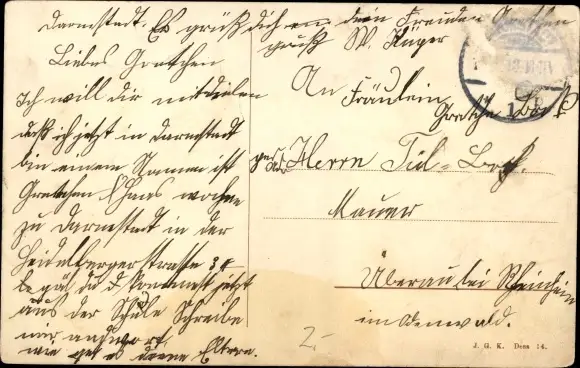 Darmstadt. Es grüß dich dein Freundin Gretchen
gruß W. Krüger
Liebes Gretchen
Ich will dir mitdeilen
daß ich jetzt in Darmstadt
bin einem Namen ist
Gretchen Haas wohne
zu Darmstadt in der
Heidelbergerstrasse
du jetzt
aus der Schule Schreibe
mir andwort,
wie get es deene Eltern.
An Fräulein
Gretche
Herrn
Mauer
Überau bei Reinheim
im Odenwald.
2.-
J. G. K. Dess 14.